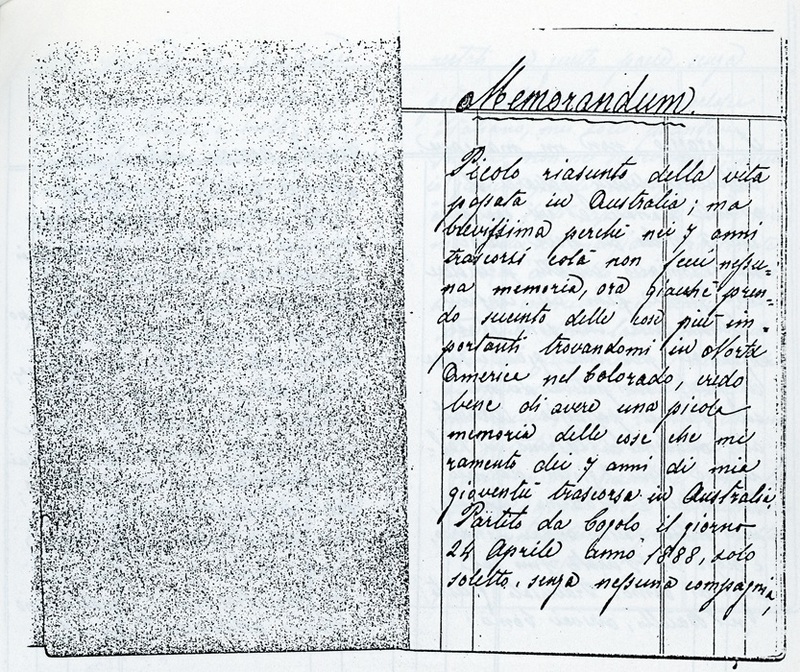 Memorandum.
Picolo riasunto della vita
passata in Australia; ma
brevissima perché nei 7 anni
trascorsi colà non feci nessu-
na memoria, ora giacché pren-
do sucinto delle cose più im-
portanti trovandomi in Nortd
America nel Colorado, credo
bene di avere una picola
memoria delle cose che mi
ramento dei 7 anni di mia
gioventù trascorsa in Australia,
Partito da Cogolo il giorno
24 Aprile anno 1888, solo
soletto, senza nessuna compagnia,